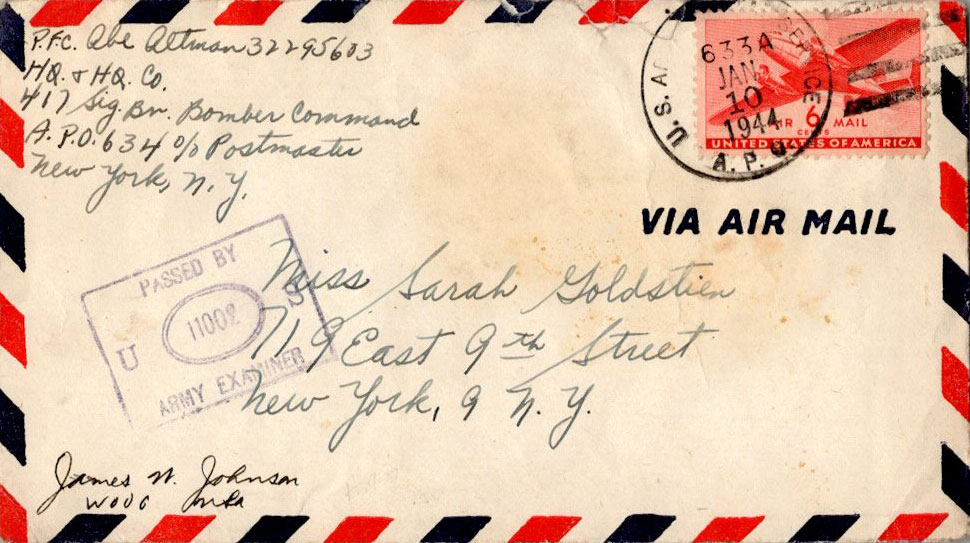 P.F.C. Abe Altman 32295603
HQ. & HQ. Co.
417 Sig. Bn. Bomber Command
A.P.O. 634 c/o Postmaster
New York, N.Y.
U.S. A
CE
A.P.O.
633A
JAN
10
1944
AIR 6 MAIL
CENTS
UNITED STATES OF AMERICA
VIA AIR MAIL
PASSED BY
U 11002 S
ARMY EXAMINER
Miss Sarah Goldstien
719 East 9th Street
New York, 9 N.Y.
James W. Johnson